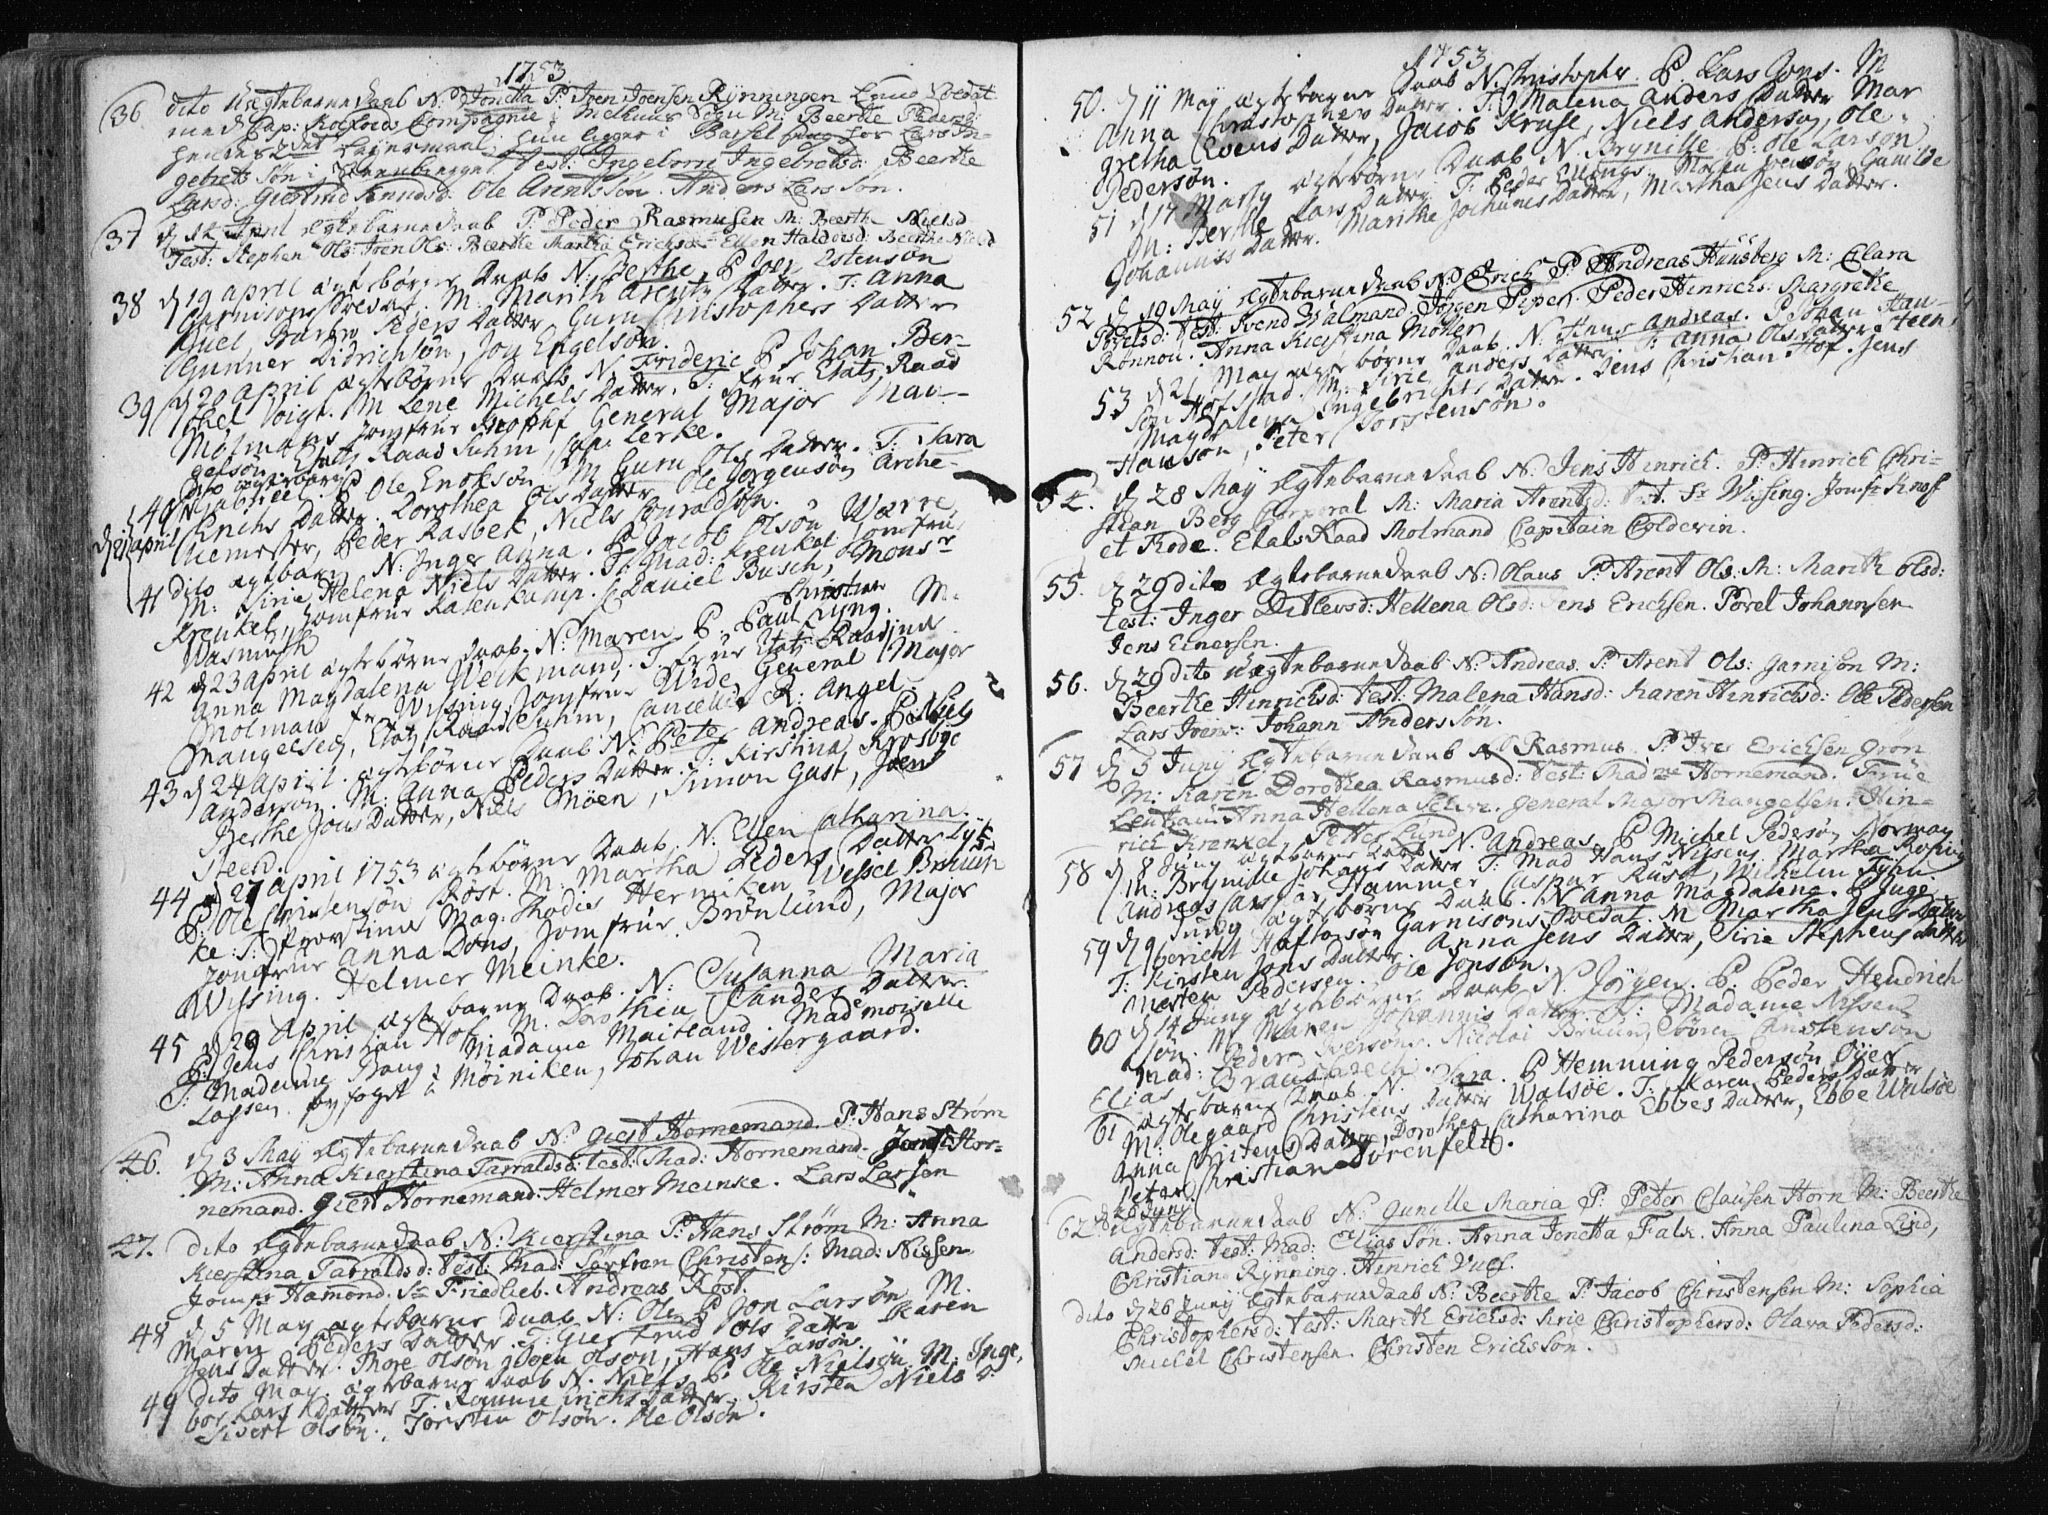 1753
36 dito Uægtebarne daab N: Jonetta P: Joen Joensen Rÿnningen Land Soldat
med Cap: Compagnie i Melhuus Sogn M: Beerthe Peders:
hendes 2det Leyermaal, hun ligger i Barsel Seng hos Lars In-
gebrets Søn i Test: Ingeborg Ingebretsd: Beerthe
Larsd: Giertrud Knudsd: Ole Arentssøn. Anders Lars Søn.
37 d 12 April Ægtebarne daab P: Peder Rasmusen M: Beerthe Nielsd
Test: Stephen Ols: Iven Ols: Beerthe Martha Erichsd: Ellen Haldosd: Beerthe Nielsd
38 d 19 april ægtebørne Daab N: Berthe, P Joen Estensøn
Garnisons Soldat. M: Marith Arents Datter. T: Anna
Juel, Karen Peders Datter Guru Christophers Datter
Gunner Didrichsøn, Jon Engelsøn.
39 d 20 april ægtebørne Daab N. Frideric P Johan Ber-
thel Voigt. M Lene Michels Datter. T: frue Etats Raad
Molmans Jomfrue Kropf General Major Man-
gelsen. Etats Raad Suhm, Lerke.
40 dito ægtebarne
Gabriel. P Ole Enoksøn M Guru Ols Datter. T: Sara
Erichs Datter. Dorothea Ols Datter Ole Jørgensøn Arche-
liemester, Peder Rasbek, Niels Conradsøn.
d 21 april
41 dito ægtbarn N: Inger Anna. P Jacob Olsøn Wærre,
M: Sirie Helena Niels Datter. T: Mad: Krenkel Jomfrue
Krenkel, Jomfrue Rasenkamp. Daniel Busch, Monsr
Wasmuth
42 d 23 april ægtebørne daab. N: Maren Christine P. Paul Lyng. M.
Anna Magdalena Weikmand. T frue Etats Raadinde
Molman fr Wissing, Jomfrue Wide, General Major
Mangelsen, Etats Raad Suhm, Cancellie R. Angel
43 d 24 April. ægtebørne Daab N: Peter Andreas. P Niels
Andersøn. M: Anna Peders Datter. T: Kirstina Krosbye
Berthe Jons Datter, Niels Møen, Simon Gast, Joen
Steen.
44 d 27 april 1753 ægtebørne Daab. N: Ellen Catharina.
P: Ole Christensøn Røst. M: Martha Peders Datter Lyk-
ke: T: Provstinde Mag. Thodies Herniken Wessel Bruun
Jomfrue Anna Dons, Jomfrue Brønlund, Major
Wissing. Helmer Meinke.
45 d 29 April ægtebarne Daab. N: Susanna Maria
P: Jens Christian Hof. M. Dorothea Sanders Datter.
T. Madame Bang, Madame Maitland. Mademoiselle
Lassen. Byfoget Møiniken, Johan Westergaard.
46. d 3 May Ægtebarne daab N: Giert Hornemand P: Hans Strøm
M: Anna Kierstina Tarraldsd: test: Mad: Hornemand. Jomfr Hor-
nemand. Giert Hornemand. Helmer Meinke. Lars Larsen
47. dito Ægtebarne daab N: Kierstina P: Hans Strøm M: Anna
Kierstina Tarraldsd: test: Mad: Sørfren Christens: Mad: Nissen
Jomfr Hamond. Sr Friedlieb. Andreas Røst.
48 d 5 May ægtebarne Daab N: Ole P Jon Larsøn M.
Maren Peders Datter. T: Giertrud Ols Datter Karen
Jens Datter. Thore Olsøn Joen Olsøn, Hans Larsøn.
49 dito May. ægtebarne daab N. Niels P Ole Nielsøn. M. Inge,
bor Lars Datter T. Ranne Erichs Datter. Kirsten Niels D:
Sivert Olsøn, Torsten Olsøn. Ole Olsøn.
1753
50. d 11 May ægtebarne Daab N. Christopher P. Lars Jons. M
Anna Christophers Datter. T. Malena Anders Datter Mar
gretha Evens Datter, Jacob Kruse, Niels Andersøn, Ole
Pedersøn.
51 d 17 May ægtebørne Daab N. Brynille P: Ole Larsøn
M: Berthe Lars Datter T: Peder Ellings. Morten Jensøn Gunilde
Johannis Datter. Marithe Johannis Datter, Martha Jens Datter.
52 d 19 May Ægtebarne daab N: Erich P: Andreas Huusberg M: Clara
Povelsd: test: Svend Walmand. Jørgen Piper. Peder Hinrichs. Margrethe
Rønnou. Anna Kierstina Møller
53 d 21 May ægtebørne Daab. N. Hans Andreas. P Johan Han-
søn Hofstad. M: Sirie Anders Datter. T: Anna Ols Datter Steen,
Magdalena Ingebrichts Datter. Jens Christian Hof. Jens
Hansøn, Peter Torstensøn.
54. d 28 May Ægtebarne daab N: Jens Hinrich. P: Hinrich Chri-
stian Berg Corporal M: Maria Arentsd: test: Fr Wissing. Jomfr Knof
et Rode. Etats Raad Molmand Capitain Colderin.
55. d 29 dito Ægtebarne daab N: Olaus P: Arent Ols. M: Marith Olsd:
test: Inger Ditlevsd: Hellena Olsd: Jens Erichsen. Povel Johannsen
Jens Einersen.
56. d 29 dito Uægtebarne daab N: Andreas P: Arent Ols: Garnison M:
Beerthe Hinrichsd: test: Malena Hansd: Karen Hinrichsd: Ole Pedersen
Lars Ivers: Johann Anders Søn.
57 d 5 Juny Ægtebarne daab N: Rasmus P: Iver Erichsen Grøn
M: Karen Dorothea Rasmusd: test: Madme Hornemand. Frue
Leutnant Anna Hellena Schive. General Major Mangelsen. Hin-
rich Krenkel, Petter Lund
58 d 8 Juny ægtebørne Daab N. Andreas P Michel Pedersøn Norman
M: Brynille Johans Datter T: Mad Hans Nissens, Martha Roning
Andreas Hammer, Caspar Rust, Wilhelm Tÿhn.
59 d 9 Juny ægtebørne Daab. N Anna Magdalena. P Inge
bericht Haftorsøn Garnisons Soldat. M Martha Jens Datter
T: Kirsten Jons Datter. Anna Jens Datter, Sirie Stephens Datter
Morten Pedersen. Ole Jonsøn.
60 d 14 Juny ægtebørne Daab N. Jørgen. P. Peder Hendrich
søn. M: Maren Johannis Datter. T: Madame Nissen
Mad: Peder Iversøns. Nicolai Bruun, Søren Carstensøn
Elias Brausbrech.
61 ægtebarne Daab N. Sara. P Hemming Pedersøn Øyel
M: Olegaard Christens Datter Walsøe. T: Karen Peders Datter
Anna Christens Datter, Dorothea Catharina Ebbes Datter, Ebbe Walsøe
Peter Christian Dorenfeldt.
d 26 Juny
62 Ægtebarne daab N: Gunille Maria P: Peter Clausen Horn M: Beerthe
Andersd: test: Mad: Elias Søn. Anna Jonetta Falk. Anna Paulina Lind,
Christian Rÿnning. Hinrich Vulf.
dito d 26 Juny Ægtebarne daab N: Beerthe P: Jacob Christensen M: Sophia
Christophersd: test: Marith Erichsd: Sirie Christophersd: Olava Pedersd:
Michel Christensen. Christen Ericksøn.